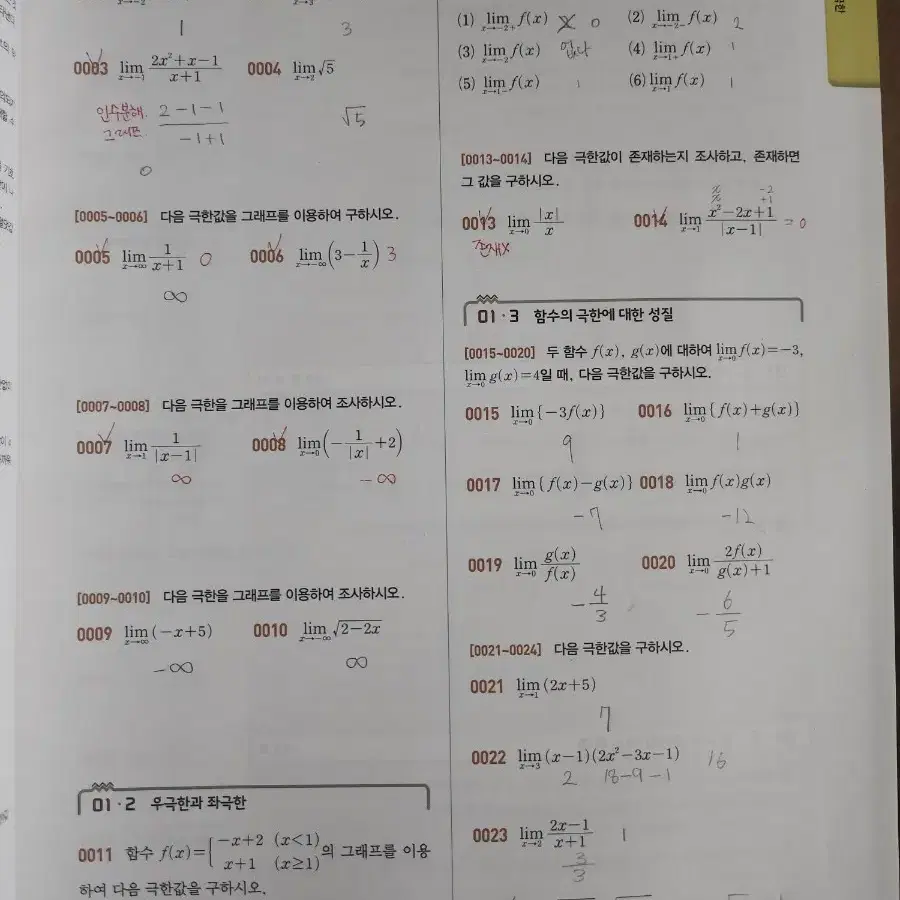 1 3
0003 lim x→-1 (2x²+x-1)/(x+1) 0004 lim x→2 √5
인수분해. (2-1-1)/(-1+1) √5
그래프.
0
[0005~0006] 다음 극한값을 그래프를 이용하여 구하시오.
0005 lim x→∞ 1/(x+1) 0 0006 lim x→-∞ (3-1/x) 3
∞
[0007~0008] 다음 극한을 그래프를 이용하여 조사하시오.
0007 lim x→1 1/|x-1| 0008 lim x→0 (-1/|x|+2)
∞ -∞
[0009~0010] 다음 극한을 그래프를 이용하여 조사하시오.
0009 lim x→∞ (-x+5) 0010 lim x→-∞ √(2-2x)
-∞ ∞
01·2 우극한과 좌극한
0011 함수 f(x)={-x+2 (x<1) x+1 (x≥1)의 그래프를 이용
하여 다음 극한값을 구하시오.
(1) lim x→-2+ f(x) 0 (2) lim x→-2- f(x) 2
(3) lim x→-2 f(x) 없다 (4) lim x→1+ f(x) 1
(5) lim x→1- f(x) 1 (6) lim x→1 f(x) 1
[0013~0014] 다음 극한값이 존재하는지 조사하고, 존재하면
그 값을 구하시오.
0013 lim x→0 |x|/x 0014 lim x→1 (x²-2x+1)/|x-1| =0
존재X
01·3 함수의 극한에 대한 성질
[0015~0020] 두 함수 f(x), g(x)에 대하여 lim x→0 f(x)=-3,
lim x→0 g(x)=4일 때, 다음 극한값을 구하시오.
0015 lim x→0 {-3f(x)} 0016 lim x→0 {f(x)+g(x)}
9 1
0017 lim x→0 {f(x)-g(x)} 0018 lim x→0 f(x)g(x)
-7 -12
0019 lim x→0 g(x)/f(x) 0020 lim x→0 2f(x)/(g(x)+1)
-4/3 -6/5
[0021~0024] 다음 극한값을 구하시오.
0021 lim x→1 (2x+5)
7
0022 lim x→3 (x-1)(2x²-3x-1) 16
2 18-9-1
0023 lim x→2 (2x-1)/(x+1) 1
3/3